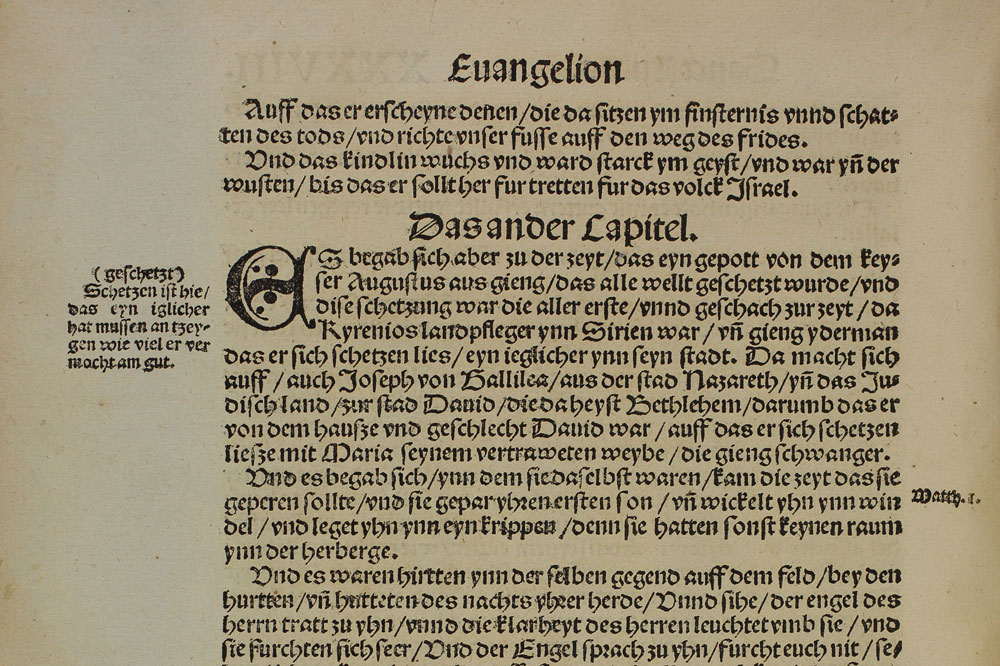 Euangelion
Auff das er erscheyne denen/die da sitzen ym finsternis vnnd schat-
ten des tods/vnd richte vnser fusse auff den weg des frides.
Vnd das kindlin wuchs vnd ward starck ym geyst/vnd war yñ der
wusten/bis das er sollt her fur tretten fur das volck Israel.
Das ander Capitel.
ES begab sich aber zu der zeyt/das eyn gepott von dem key-
ser Augustus aus gieng/das alle wellt geschetzt wurde/vnd
dise schetzung war die aller erste/vnnd geschach zur zeyt/da
Kyrenios landpfleger ynn Sirien war/vñ gieng yderman
das er sich schetzen lies/eyn ieglicher ynn seyn stadt. Da macht sich
auff/auch Joseph von Gallilea/aus der stad Nazareth/yñ das Ju-
disch land/zur stad Dauid/die da heyst Bethlehem/darumb das er
von dem hausze vnd geschlecht Dauid war/auff das er sich schetzen
liesze mit Maria seynem vertraweten weybe/die gieng schwanger.
Vnd es begab sich/ynn dem sie daselbst waren/kam die zeyt das sie
geperen sollte/vnd sie gepar yhren ersten son/vñ wickelt yhn ynn win
del/vnd leget yhn ynn eyn krippen/denn sie hatten sonst keynen raum
ynn der herberge.
Vnd es waren hirtten ynn der selben gegend auff dem feld/bey den
hurtten/vñ hutteten des nachts yhrer herde/Vnnd sihe/der engel des
herrn tratt zu yhn/vnnd die klarheyt des herren leuchtet vmb sie/vnd
sie furchten sich seer/Vnd der Engel sprach zu yhn/furcht euch nit/se-
(geschetzt)
Schetzen ist hie/
das eyn iglicher
hat mussen an tzey-
gen wie viel er ver
mocht am gut.
Matth. 1.